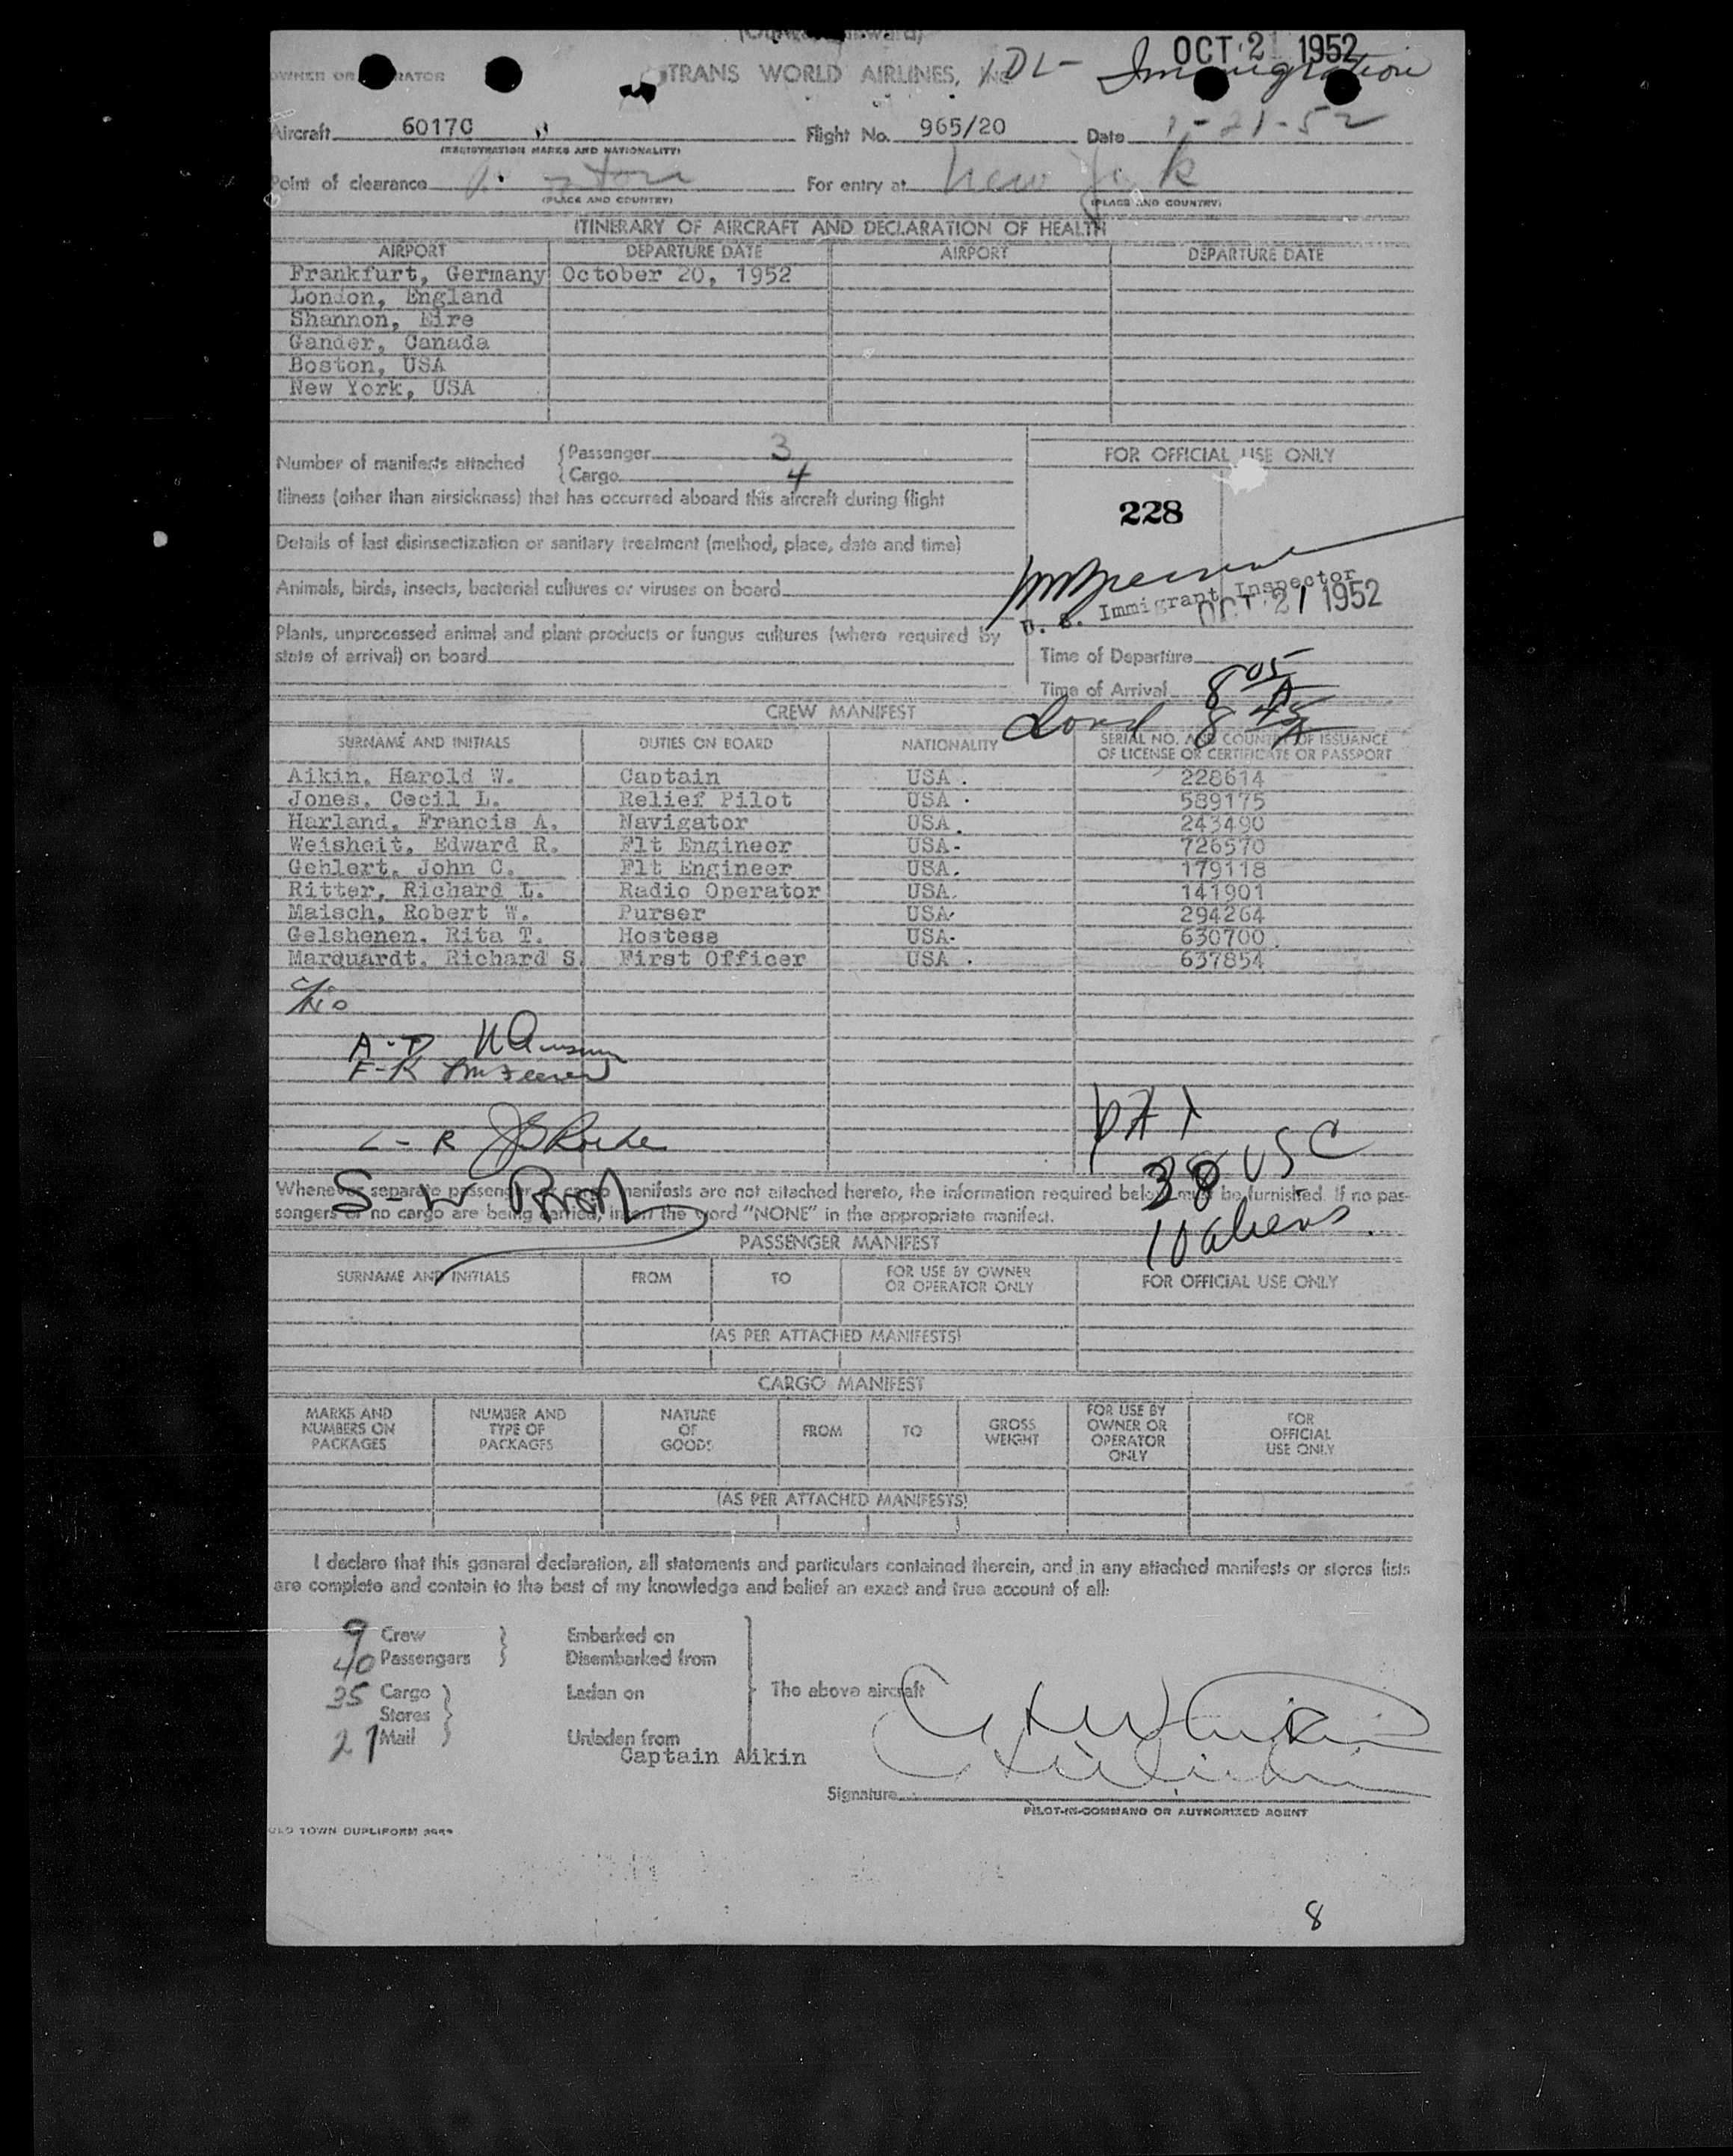 OCT 21 1952
OWNER OR OPERATOR TRANS WORLD AIRLINES, INC IDL- Immigration
Aircraft 6017C Flight No. 965/20 Date -21-52
(REGISTRATION MARKS AND NATIONALITY)
Point of clearance For entry at New York
(PLACE AND COUNTRY) (PLACE AND COUNTRY)
ITINERARY OF AIRCRAFT AND DECLARATION OF HEALTH
AIRPORT DEPARTURE DATE AIRPORT DEPARTURE DATE
Frankfurt, Germany October 20, 1952
London, England
Shannon, Eire
Gander, Canada
Boston, USA
New York, USA
Number of manifests attached { Passenger 3
{ Cargo 4
FOR OFFICIAL USE ONLY
Illness (other than airsickness) that has occurred aboard this aircraft during flight
228
Details of last disinsectization or sanitary treatment (method, place, date and time)
Animals, birds, insects, bacterial cultures or viruses on board
U. S. Immigrant Inspector
OCT 21 1952
Plants, unprocessed animal and plant products or fungus cultures (where required by
state of arrival) on board
Time of Departure
Time of Arrival 8 05 A
CREW MANIFEST
8 45 A
SURNAME AND INITIALS DUTIES ON BOARD NATIONALITY SERIAL NO. AND COUNTRY OF ISSUANCE
OF LICENSE OR CERTIFICATE OR PASSPORT
Aikin, Harold W. Captain USA . 228614
Jones, Cecil L. Relief Pilot USA . 589175
Harland, Francis A. Navigator USA . 243490
Weisheit, Edward R. Flt Engineer USA- 726570
Gehlert, John C. Flt Engineer USA. 179118
Ritter, Richard L. Radio Operator USA. 141901
Maisch, Robert W. Purser USA 294264
Gelshenen, Rita T. Hostess USA. 630700
Marquardt, Richard S. First Officer USA . 637854
A-D
F-K
L-R
38 USC
S-W
Whenever separate passenger or cargo manifests are not attached hereto, the information required below must be furnished. If no pas-
sengers or no cargo are being carried, insert the word "NONE" in the appropriate manifest.
10 aliens
PASSENGER MANIFEST
SURNAME AND INITIALS FROM TO FOR USE BY OWNER
OR OPERATOR ONLY FOR OFFICIAL USE ONLY
(AS PER ATTACHED MANIFESTS)
CARGO MANIFEST
MARKS AND
NUMBERS ON
PACKAGES NUMBER AND
TYPE OF
PACKAGES NATURE
OF
GOODS FROM TO GROSS
WEIGHT FOR USE BY
OWNER OR
OPERATOR
ONLY FOR
OFFICIAL
USE ONLY
(AS PER ATTACHED MANIFESTS)
I declare that this general declaration, all statements and particulars contained therein, and in any attached manifests or stores lists
are complete and contain to the best of my knowledge and belief an exact and true account of all:
9 Crew Embarked on
40 Passengers Disembarked from
35 Cargo Laden on The above aircraft
Stores
27 Mail Unladen from
Captain Aikin
Signature
PILOT-IN-COMMAND OR AUTHORIZED AGENT
OLD TOWN DUPLIFORM
8